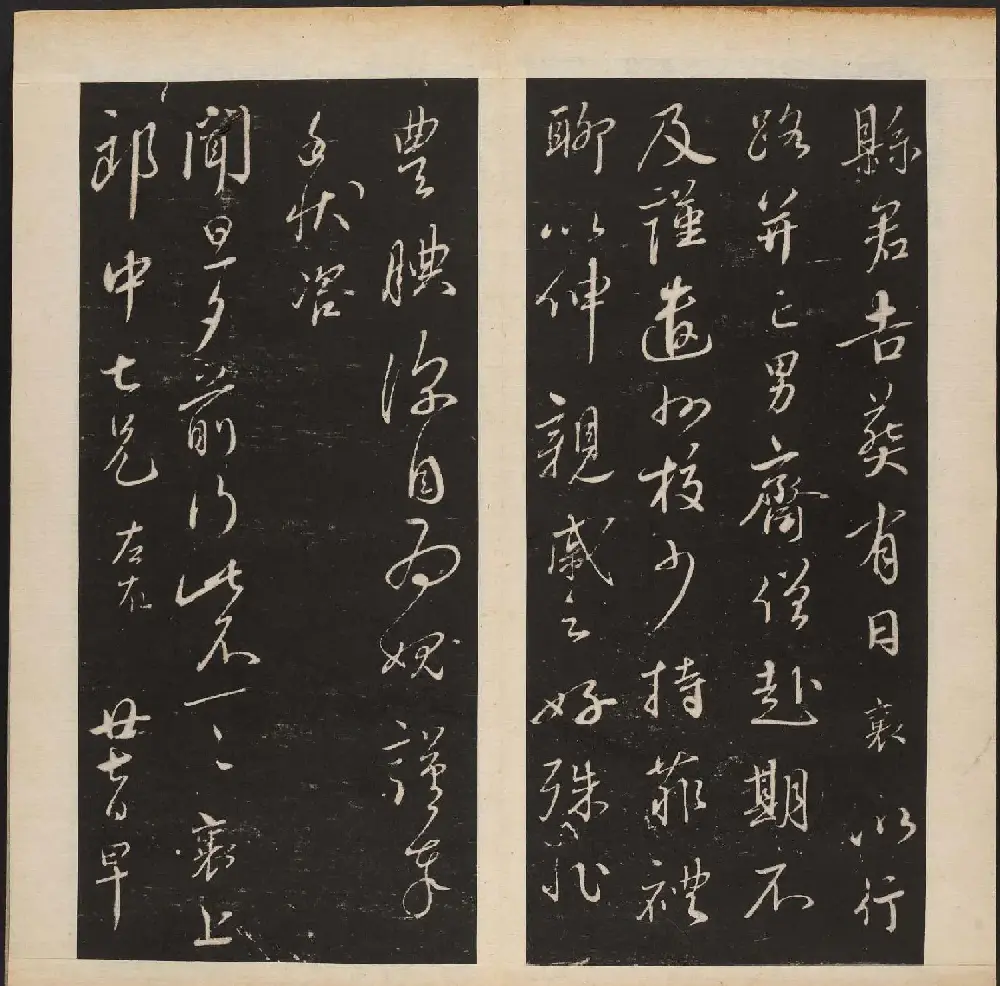 縣君吉葬有日襄以行
路并亡男齋僧赴期不
及謹遣州校少持菲禮
聊以伸親戚之好殊非
豐腆深自為媿謹奉
手狀咨
聞旦夕前行此不一一襄上
郎中七兄左右廿七日早